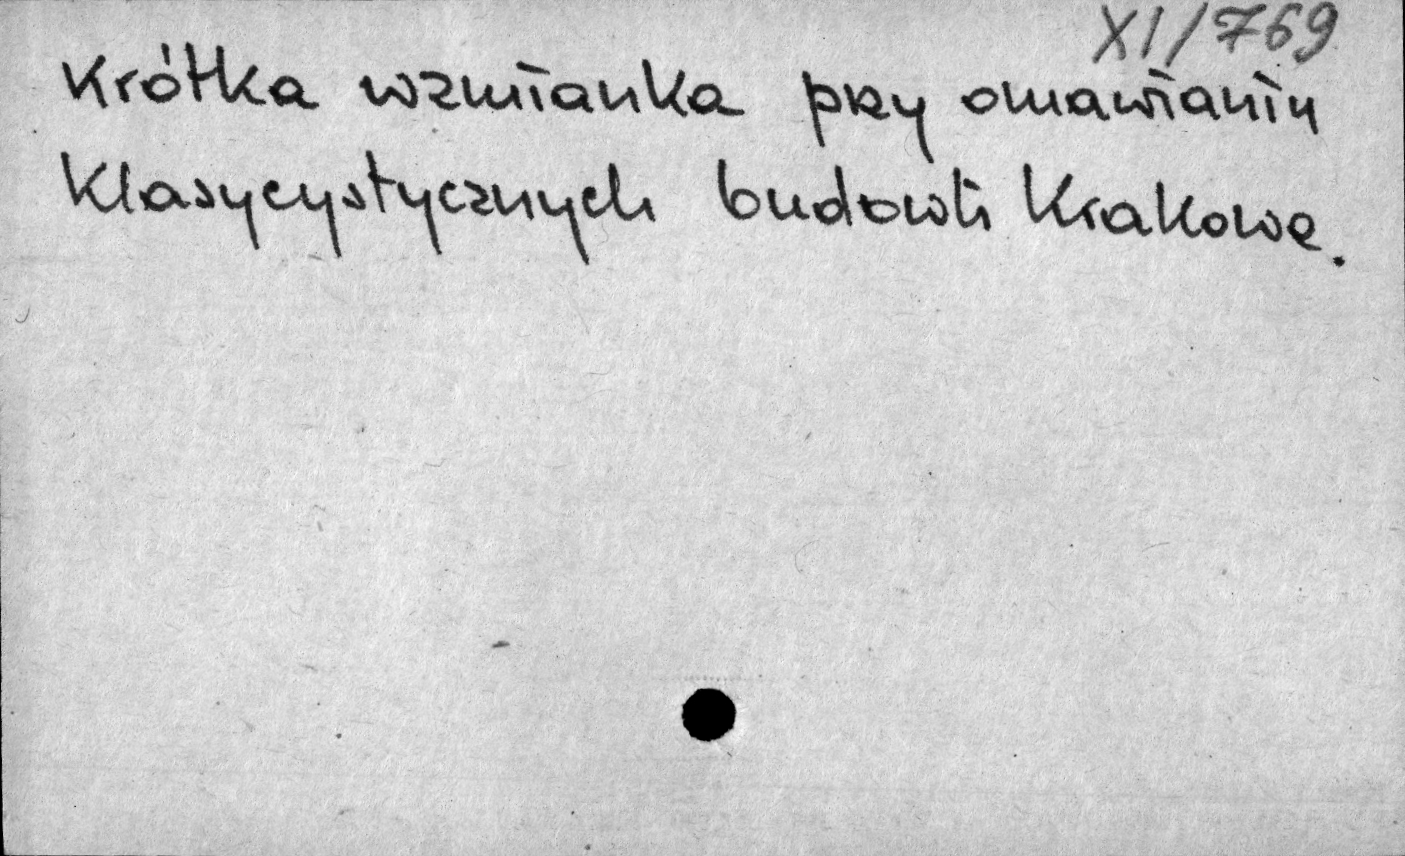 XI/769
Krótka wzmianka przy omawianiu
klasycystycznych budowli Krakowa.